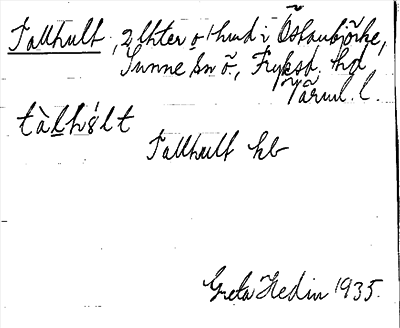 Tallhult, 2 lhter o thud i Östanbjörke,
Sunne sn ö., Fryksd. hd
Värml. l.
tàlh8́lt
Tallhult kb
Greta Hedin 1935.